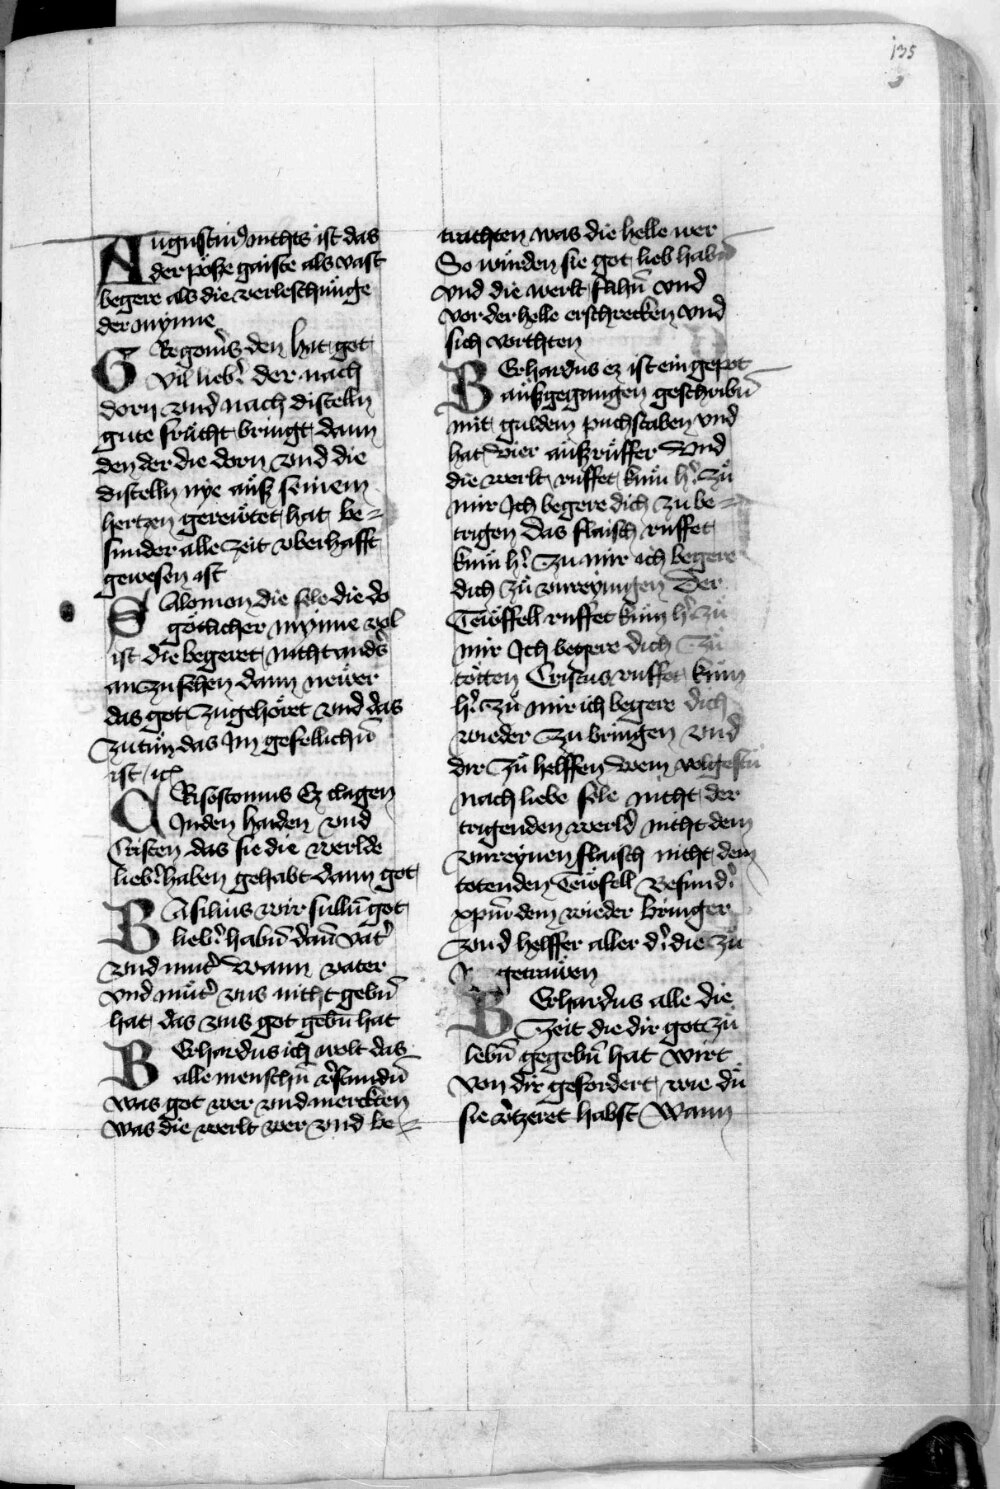 135
Augustinus nichts ist das
der pösze gaiste als vast
begere als die verleschunge
der mynne
Gregorius den hat got
vil lieber der nach
dorn vnd nach disteln
gute frücht bringt dann
den der die dorn vnd die
disteln nye aüsz seinem
hertzen gerewtet hat be=
sunder alle zeit vberhafft
gewesen ist
Salomon die sele die do
götlicher mynne vol
ist die begeret nicht anders
an zu sehen dann newer
das got zugehöret vnd das
zutun das Im gefellichn̄
ist
Crisostomus Ez clagen
Juden haiden vnd
Cristen das sie die werlde
lieber haben gehabt dann got
Basilius wir sulln̄ got
lieber habn̄ dan̄ vater
vnd muter Wann vater
vnd müter vns nicht gebn̄
hat das vns got gebn̄ hat
Berhardus ich wolt das
alle menschn̄ verstundn̄
was got wer vnd merckten
was die werlt wer vnd be=
trachten was die helle wer
So würden sie got lieb habn̄
vnd die werlt fahn̄ vnd
vor der helle erschrecken vnd
sich vorchten
Berhardus ez ist ein gepot
aüszgegangen geschribn̄
mit guldem puchstaben vnd
hat vier aüszrüffer Vnd
die werlt ruffet kum her zü
mir Ich begere dich zu be=
trigen das flaisch ruffet
kum her zu mir ich begere
dich zü vnreynigen Der
Tewffell ruffet kum her zü
mir Ich begere dich zü
tötten Cristus ruffet kum
her zü mir ich begere dich
wieder zu bringen vnd
dir zü helffen Wem volgestu
nach liebe sele nicht der
trigenden werld nicht dem
vnreynen flaisch nicht dem
totenden tewfell Besunder
xpm̄ dem wieder bringer
vnd helffer aller der die zü
getrawen
Berhardus alle die
Zeit die dir got zü
lebn̄ gegebn̄ hat wirt
von dir gefordert wie dü
sie verzeret habst Wann